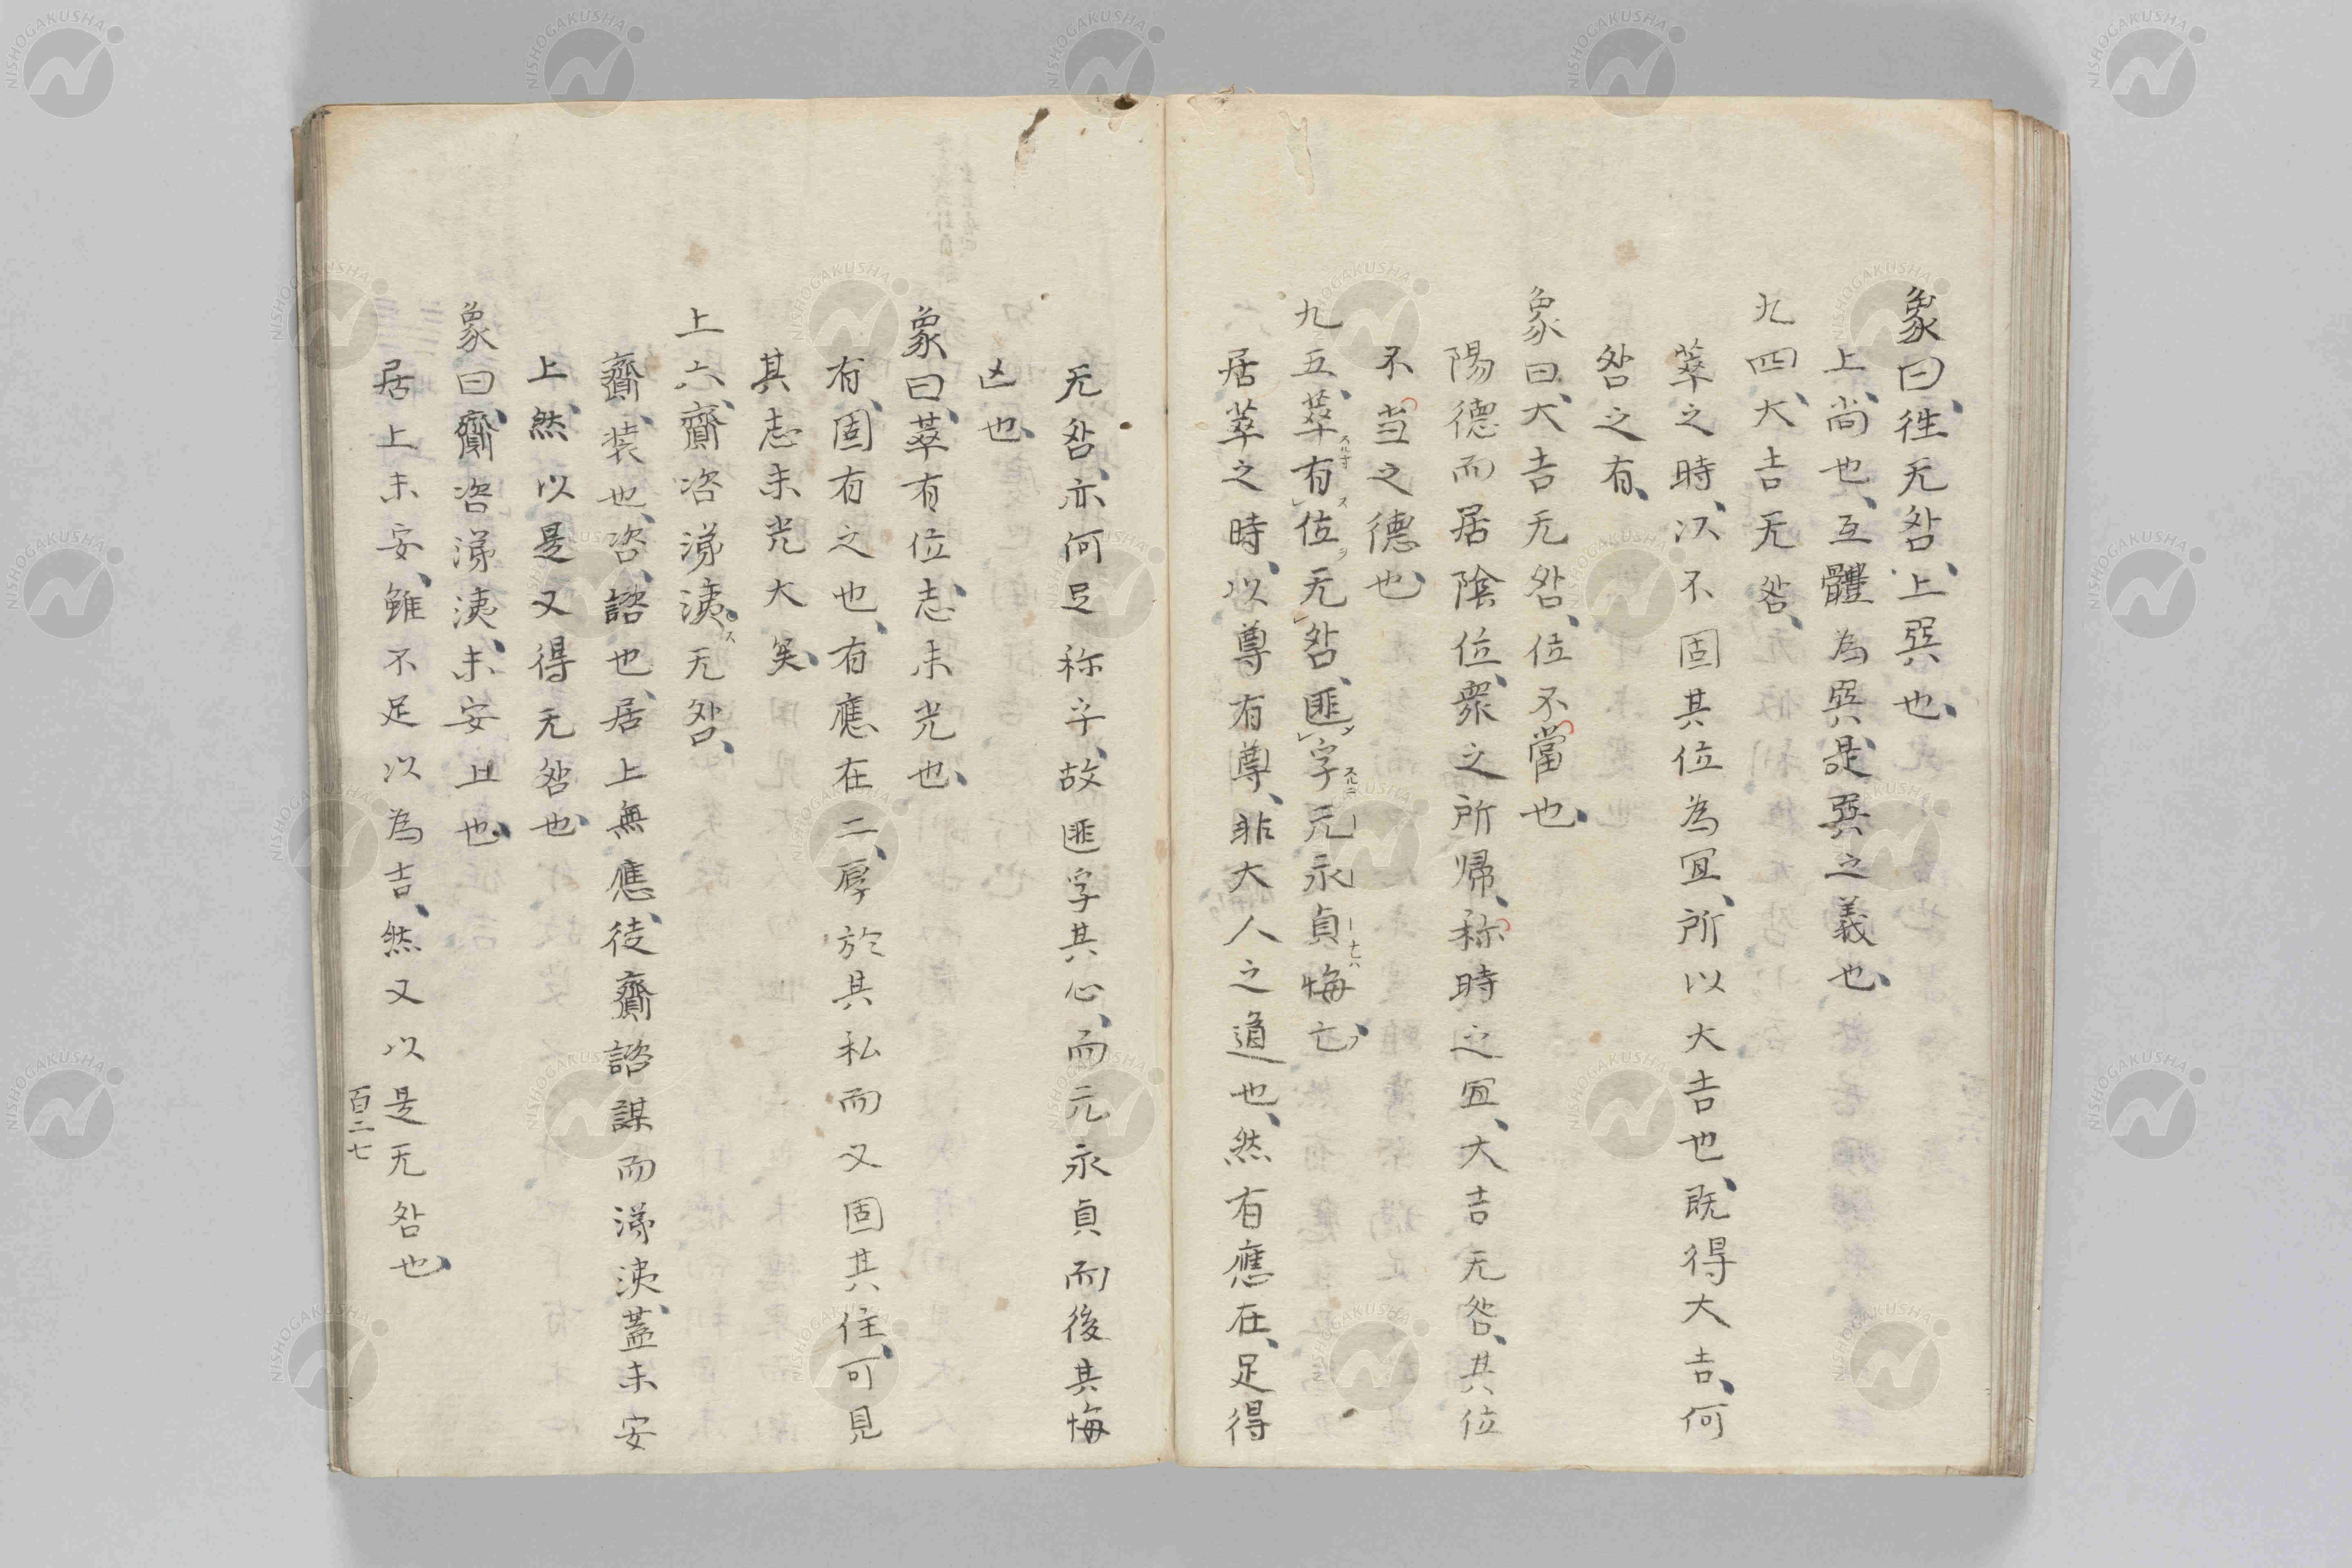 象曰、徃无咎、上巽也、
上、尚也、互體為巽、是巽之義也、
九四、大吉无咎、
萃之時、以不固其位為宜、所以大吉也、既得大吉、何
咎之有、
象曰、大吉无咎、位不當也、
陽德而居陰位、衆之所帰、称時之宜、大吉无咎、其位
不当之德也、
九五、萃有位、无咎、匪孚、元永貞、悔亡、
居萃之時、以尊有尊、非大人之道也、然有應在、足得
无咎、亦何足称乎、故匪孚其心、而元永貞而後其悔
亡也、
象曰、萃有位、志未光也、
有、固有之也、有應在二、厚於其私而又固其住、可見
其志未光大矣、
上六、齎咨涕洟、无咎、
齎、装也、咨、諮也、居上無應、徒齎諮謀而涕洟、蓋未安
上、然以是又得无咎也、
象曰、齎咨涕洟、未安上也、
居上未安、雖不足以為吉、然又以是无咎也、
百二七